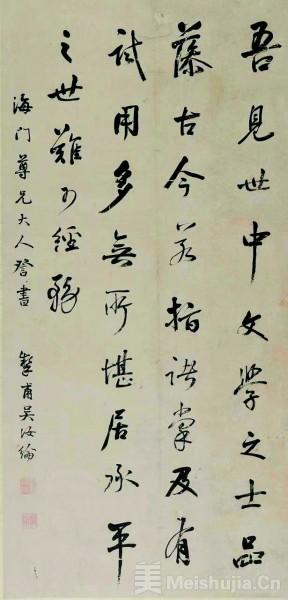 吾見世中文學之士品
藻古今若指諸掌及有
試用多無所堪居承平
之世難可經務
海門尊兄大人詧書
摯甫吳汝綸
美 Meishujia.Cn